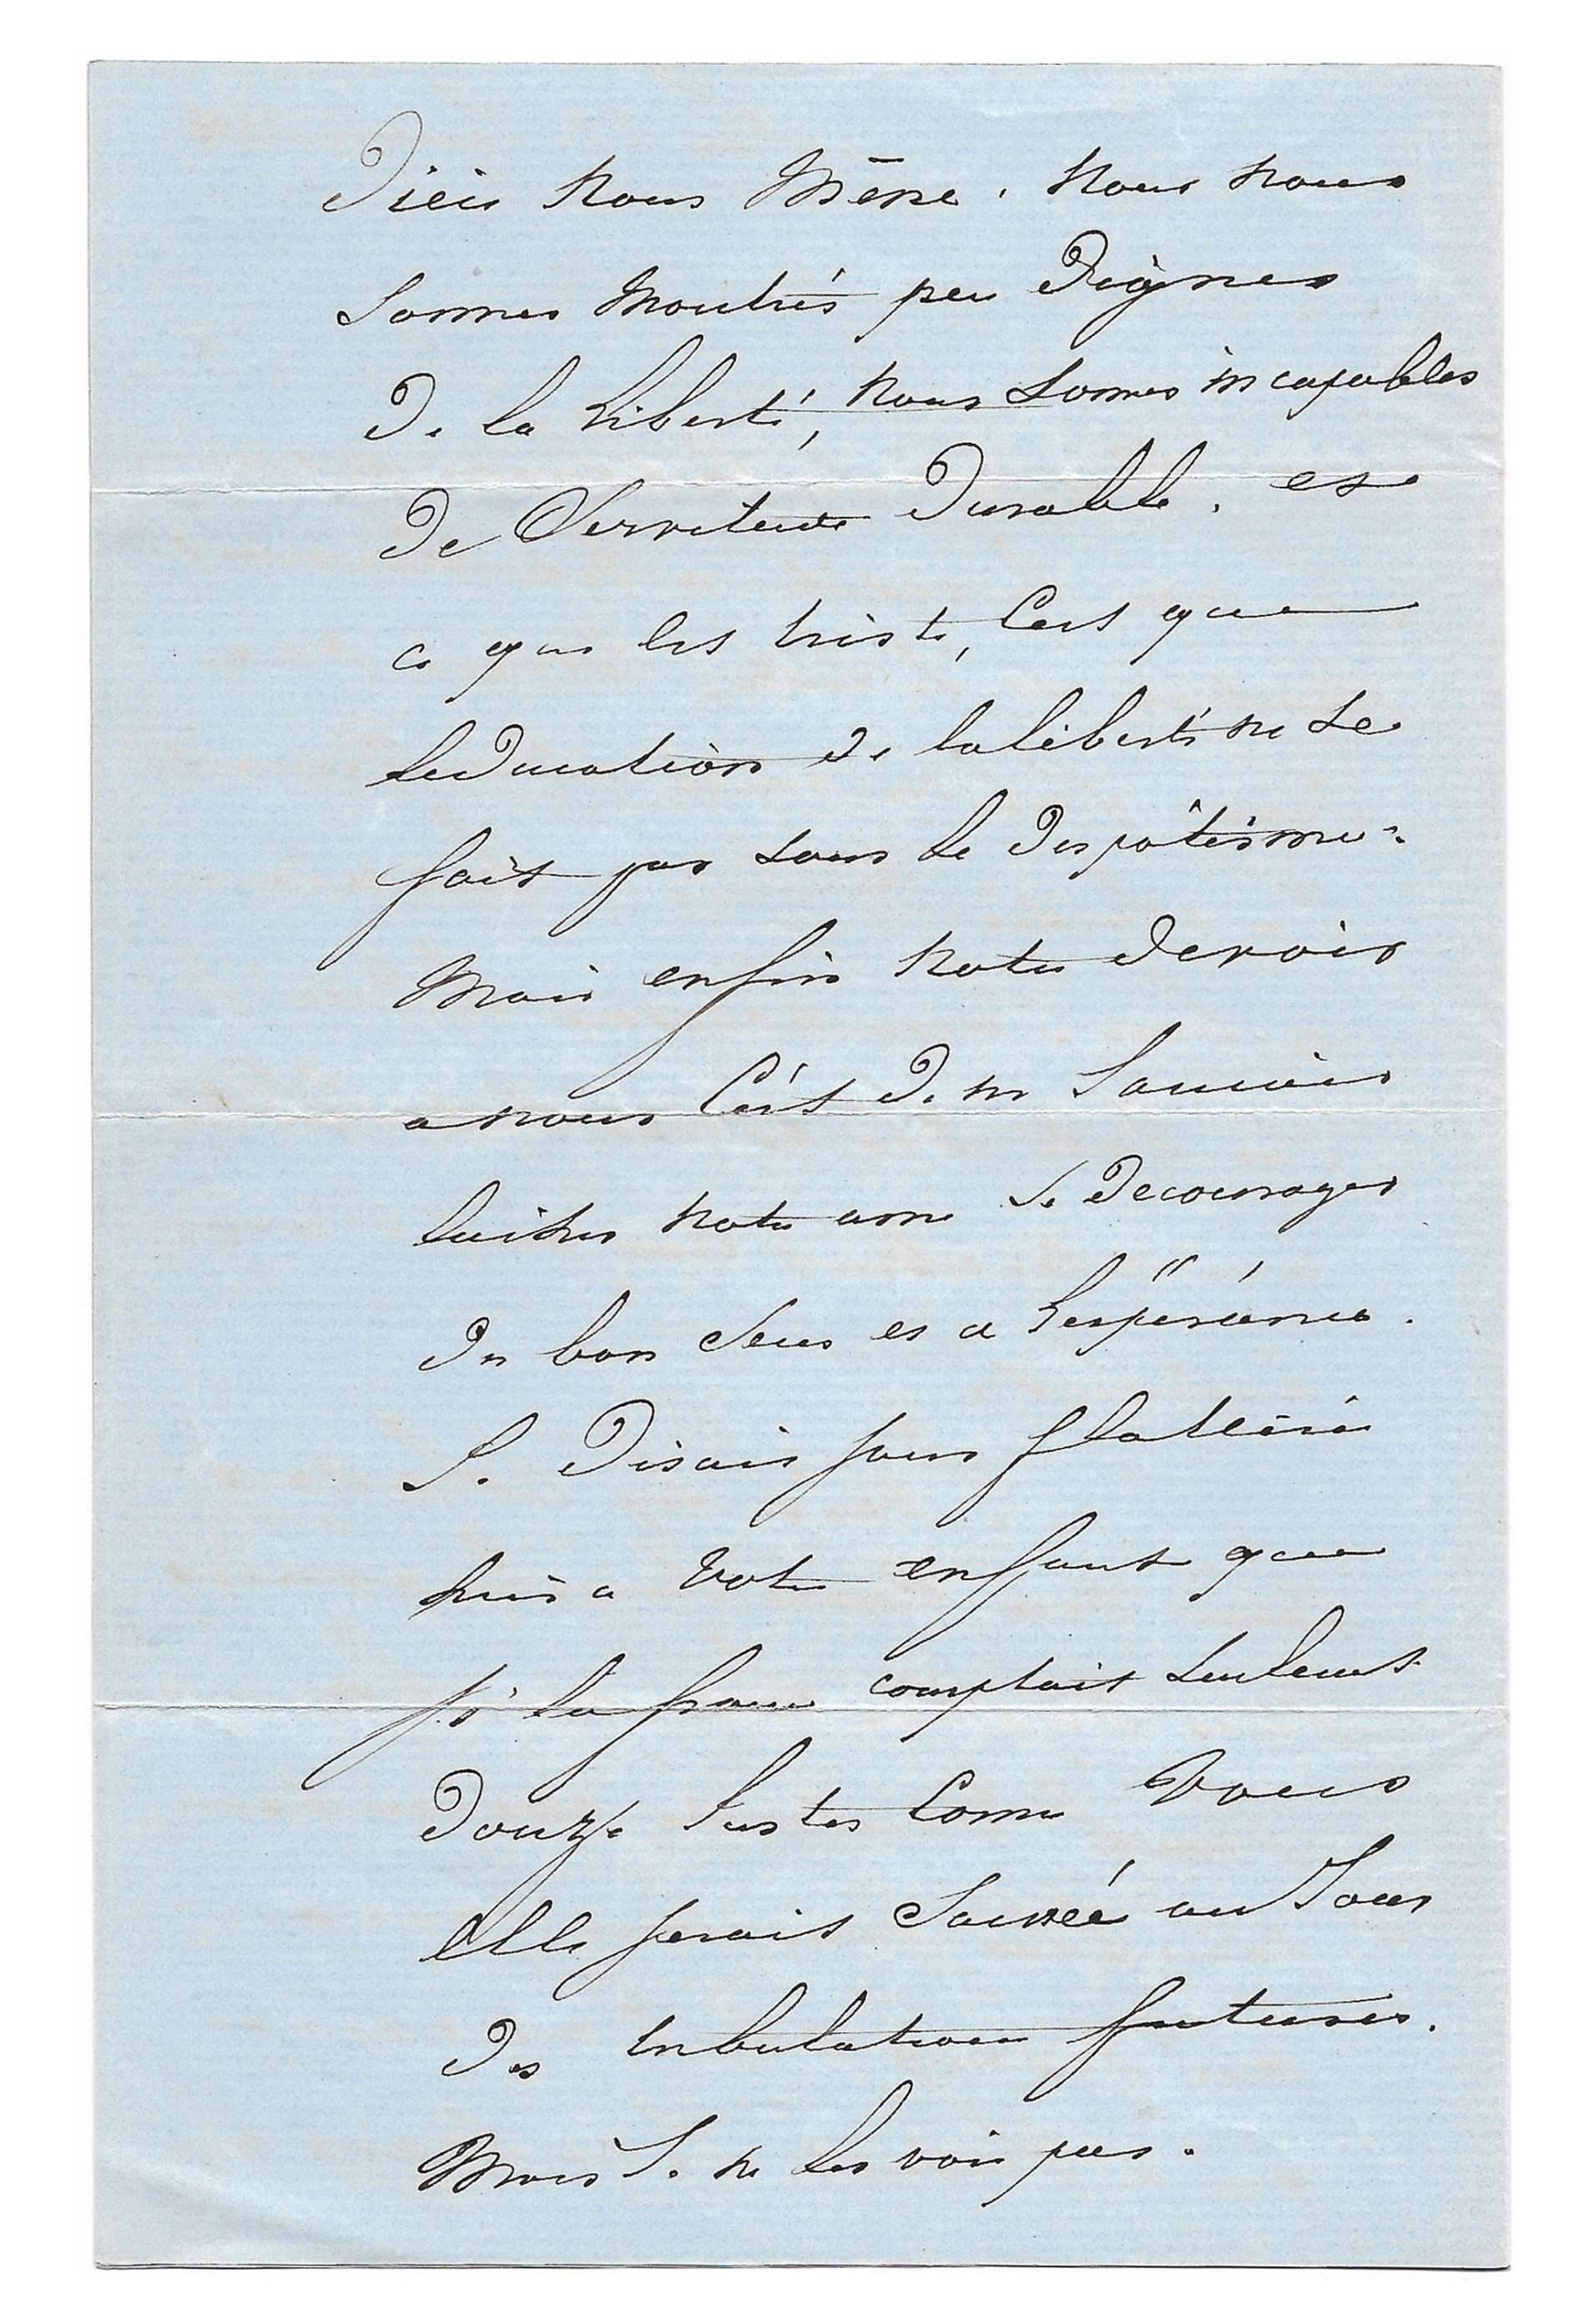 Dieu nous Mène. nous nous
sommes montrés peu Dignes
De la Liberté, nous sommes incapables
De Servitude Durable. et
ce qui est triste, C'est que
l'education de la liberté ne se
fait pas sous le Despôtisme.
Mais enfin notre devoir
a nous C'ést De ne Jamais
laisser notre ame se Decourager
Du bon sens et a L'espérance.
Je Disais sans flatterie
hier a votre enfant que
si la france comptait seulement
Douze Justes Comme vous
Elle serait Sauvée au Jour
Des tribulations futures.
Mais Je ne les vois pas.